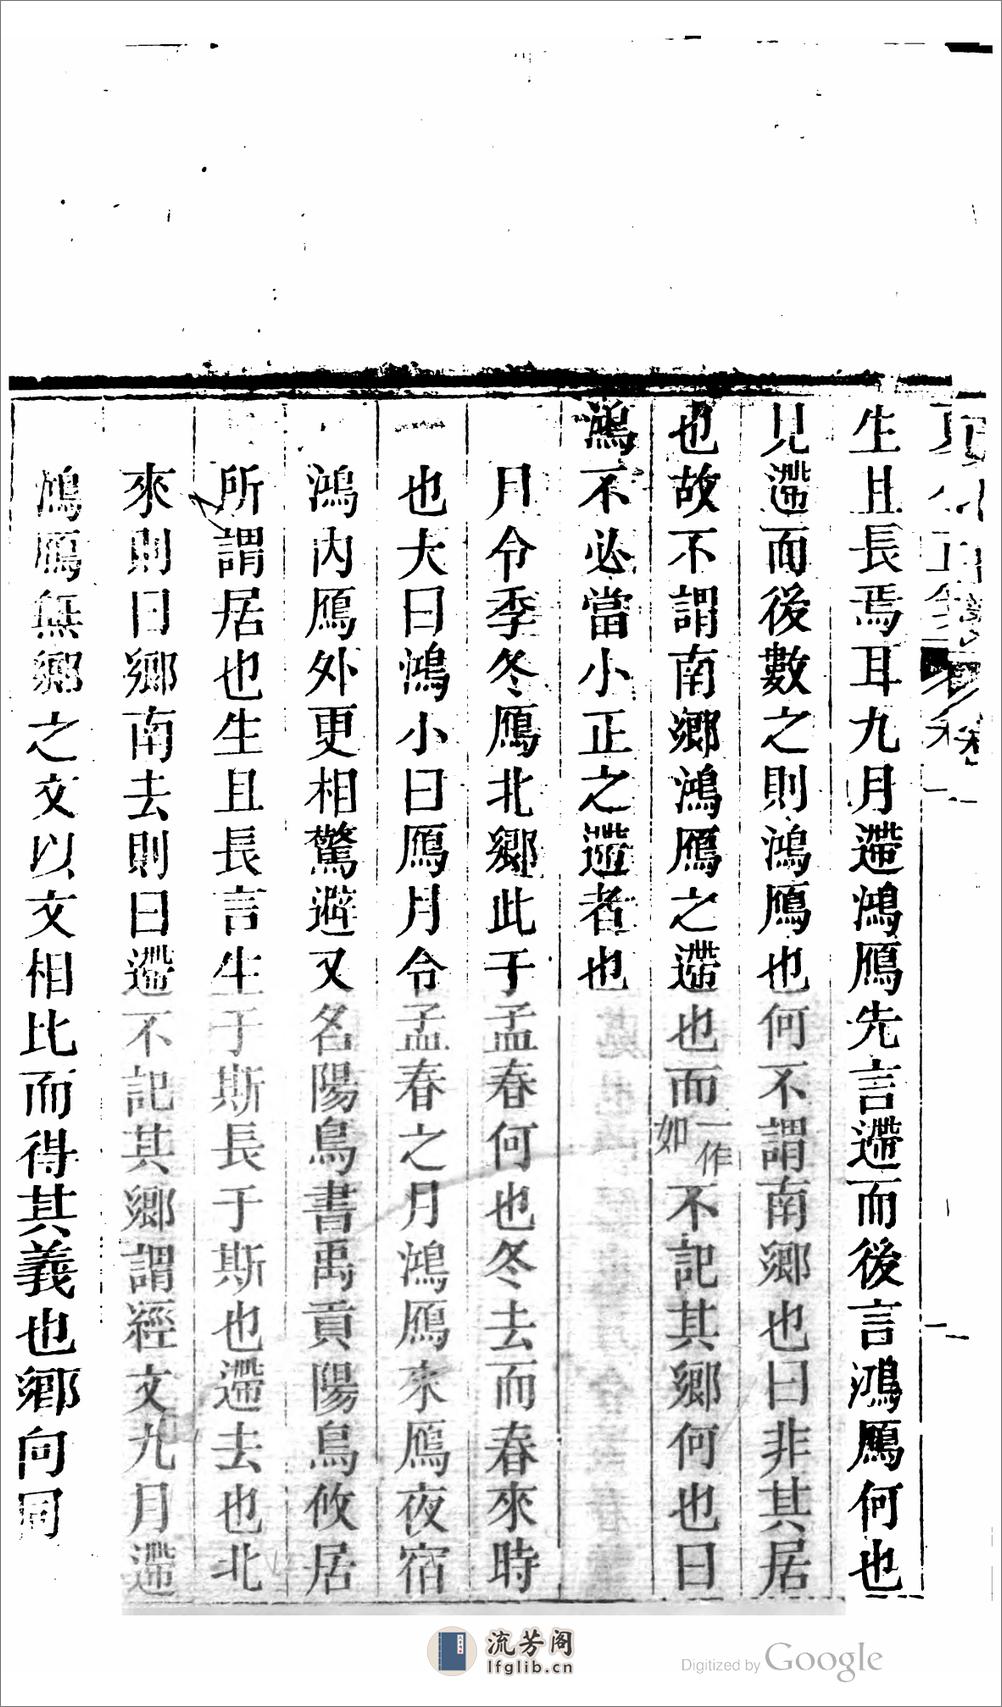 生且長焉耳九月遰鴻鴈先言遰而後言鴻鴈何也
見遰而後數之則鴻鴈也何不謂南鄉也曰非其居
也故不謂南鄉鴻鴈之遰也而一作如不記其鄉何也曰
鴻不必當小正之遰者也
月令季冬鴈北鄉此于孟春何也冬去而春來時
也大曰鴻小曰鴈月令孟春之月鴻鴈來鴈夜宿
鴻內鴈外更相驚避又名陽鳥書禹貢陽鳥攸居
所謂居也生且長言生于斯長于斯也遰去也北
來則曰鄉南去則曰遰不記其鄉謂經文九月遰
鴻鴈無鄉之文以文相比而得其義也鄉向同
流芳阁
lfglib.cn
Digitized by Google